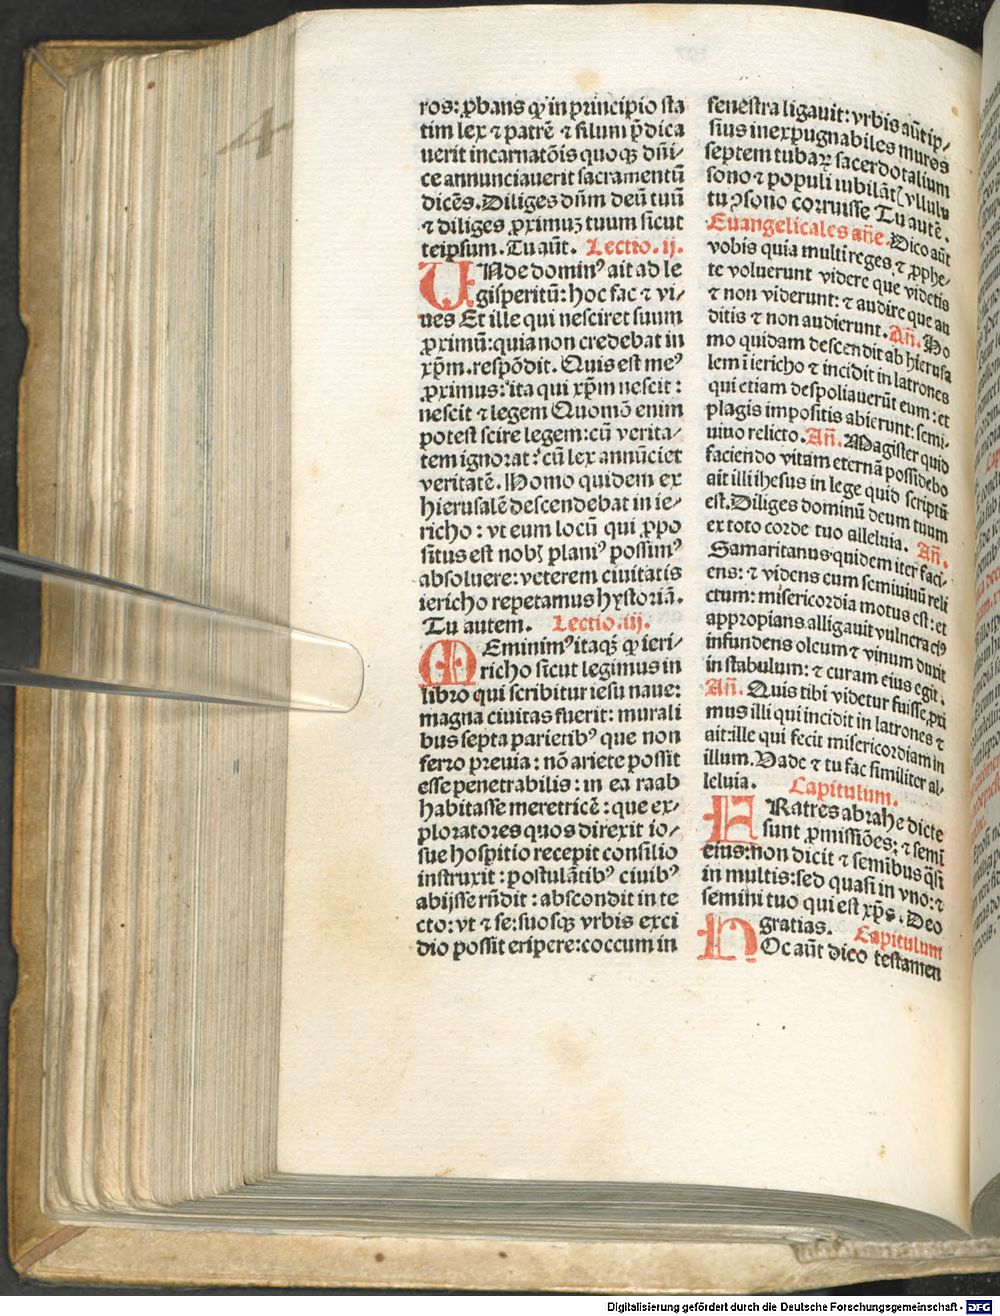 ros: ꝓbans ꝙ in principio sta
tim lex ⁊ patrē ⁊ filium p̄dica
uerit incarnatōis quoqꝫ dn̄i⸗
ce annunciauerit sacramentū
dicēs. Diliges dn̄m deū tuū
⁊ diliges ꝓximuꝫ tuum sicut
teipsum. Tu aūt. Lectio. ij.
UNde dominꝰ ait ad le
gisperitū: hoc fac ⁊ vi⸗
ues Et ille qui nesciret suum
ꝓximū: quia non credebat in
xp̄m. respōdit. Quis est meꝰ
ꝓximus: ita qui xp̄m nescit:
nescit ⁊ legem Quomō enim
potest scire legem: cū verita⸗
tem ignorat: cū lex annūciet
veritatē. Homo quidem ex
hierusalē descendebat in ie⸗
richo: vt eum locū qui ꝓpo
situs est nobꝭ planiꝰ possimꝰ
absoluere: veterem ciuitatis
iericho repetamus hystoriā.
Tu autem. Lectio. iij.
MEminimꝰ itaqꝫ ꝙ ieri⸗
richo sicut legimus in
libro qui scribitur iesu naue:
magna ciuitas fuerit: murali
bus septa parietibꝰ que non
ferro peruia: nō ariete possit
esse penetrabilis: in ea raab
habitasse meretricē: que ex⸗
ploratores quos direxit io⸗
sue hospitio recepit consilio
instruxit: postulātibꝰ ciuibꝰ
abijsse rn̄dit: abscondit in te
cto: vt ⁊ se: suosqꝫ vrbis exci
dio possit eripere: coccum in
fenestra ligauit: vrbis aūt ip⸗
sius inexpugnabiles muros
septem tubaꝝ sacerdotalium
sono ⁊ populi iubilātꝭ vllulu
tu ꝯsono corruisse Tu autē.
Euangelicales an̄e. Dico aūt
vobis quia multi reges ⁊ ꝓphe⸗
te voluerunt videre que videtis
⁊ non viderunt: ⁊ audire que au
ditis ⁊ non audierunt. An̄. Ho
mo quidam descendit ab hierusa
lem ī iericho ⁊ incidit in latrones
qui etiam despoliauerūt eum: et
plagis impositis abierunt: semi⸗
uiuo relicto. An̄. Magister quid
faciendo vitam eternā possidebo
ait illi ihesus in lege quid scriptū
est. Diliges dominū deum tuum
ex toto corde tuo alleluia. An̄.
Samaritanus quidem iter faci⸗
ens: ⁊ videns eum semiuiuū reli
ctum: misericordia motus est: et
appropians alligauit vulnera eiꝰ
infundens oleum ⁊ vinum duxit
in stabulum: ⁊ curam eius egit.
An̄. Quis tibi videtur fuisse ꝓxi
mus illi qui incidit in latrones ⁊
ait: ille qui fecit misericordiam in
illum. Vade ⁊ tu fac similiter al⸗
leluia. Capitulum.
FRatres abrahe dicte
sunt ꝓmissiōes: ⁊ semī
eius: non dicit ⁊ semībus q̄si
in multis: sed quasi in vno: ⁊
semini tuo qui est xp̄s. Deo
gratias. Capitulum
HOc aūt dico testamen
4
Digitalisierung gefördert durch die Deutsche Forschungsgemeinschaft - DFG